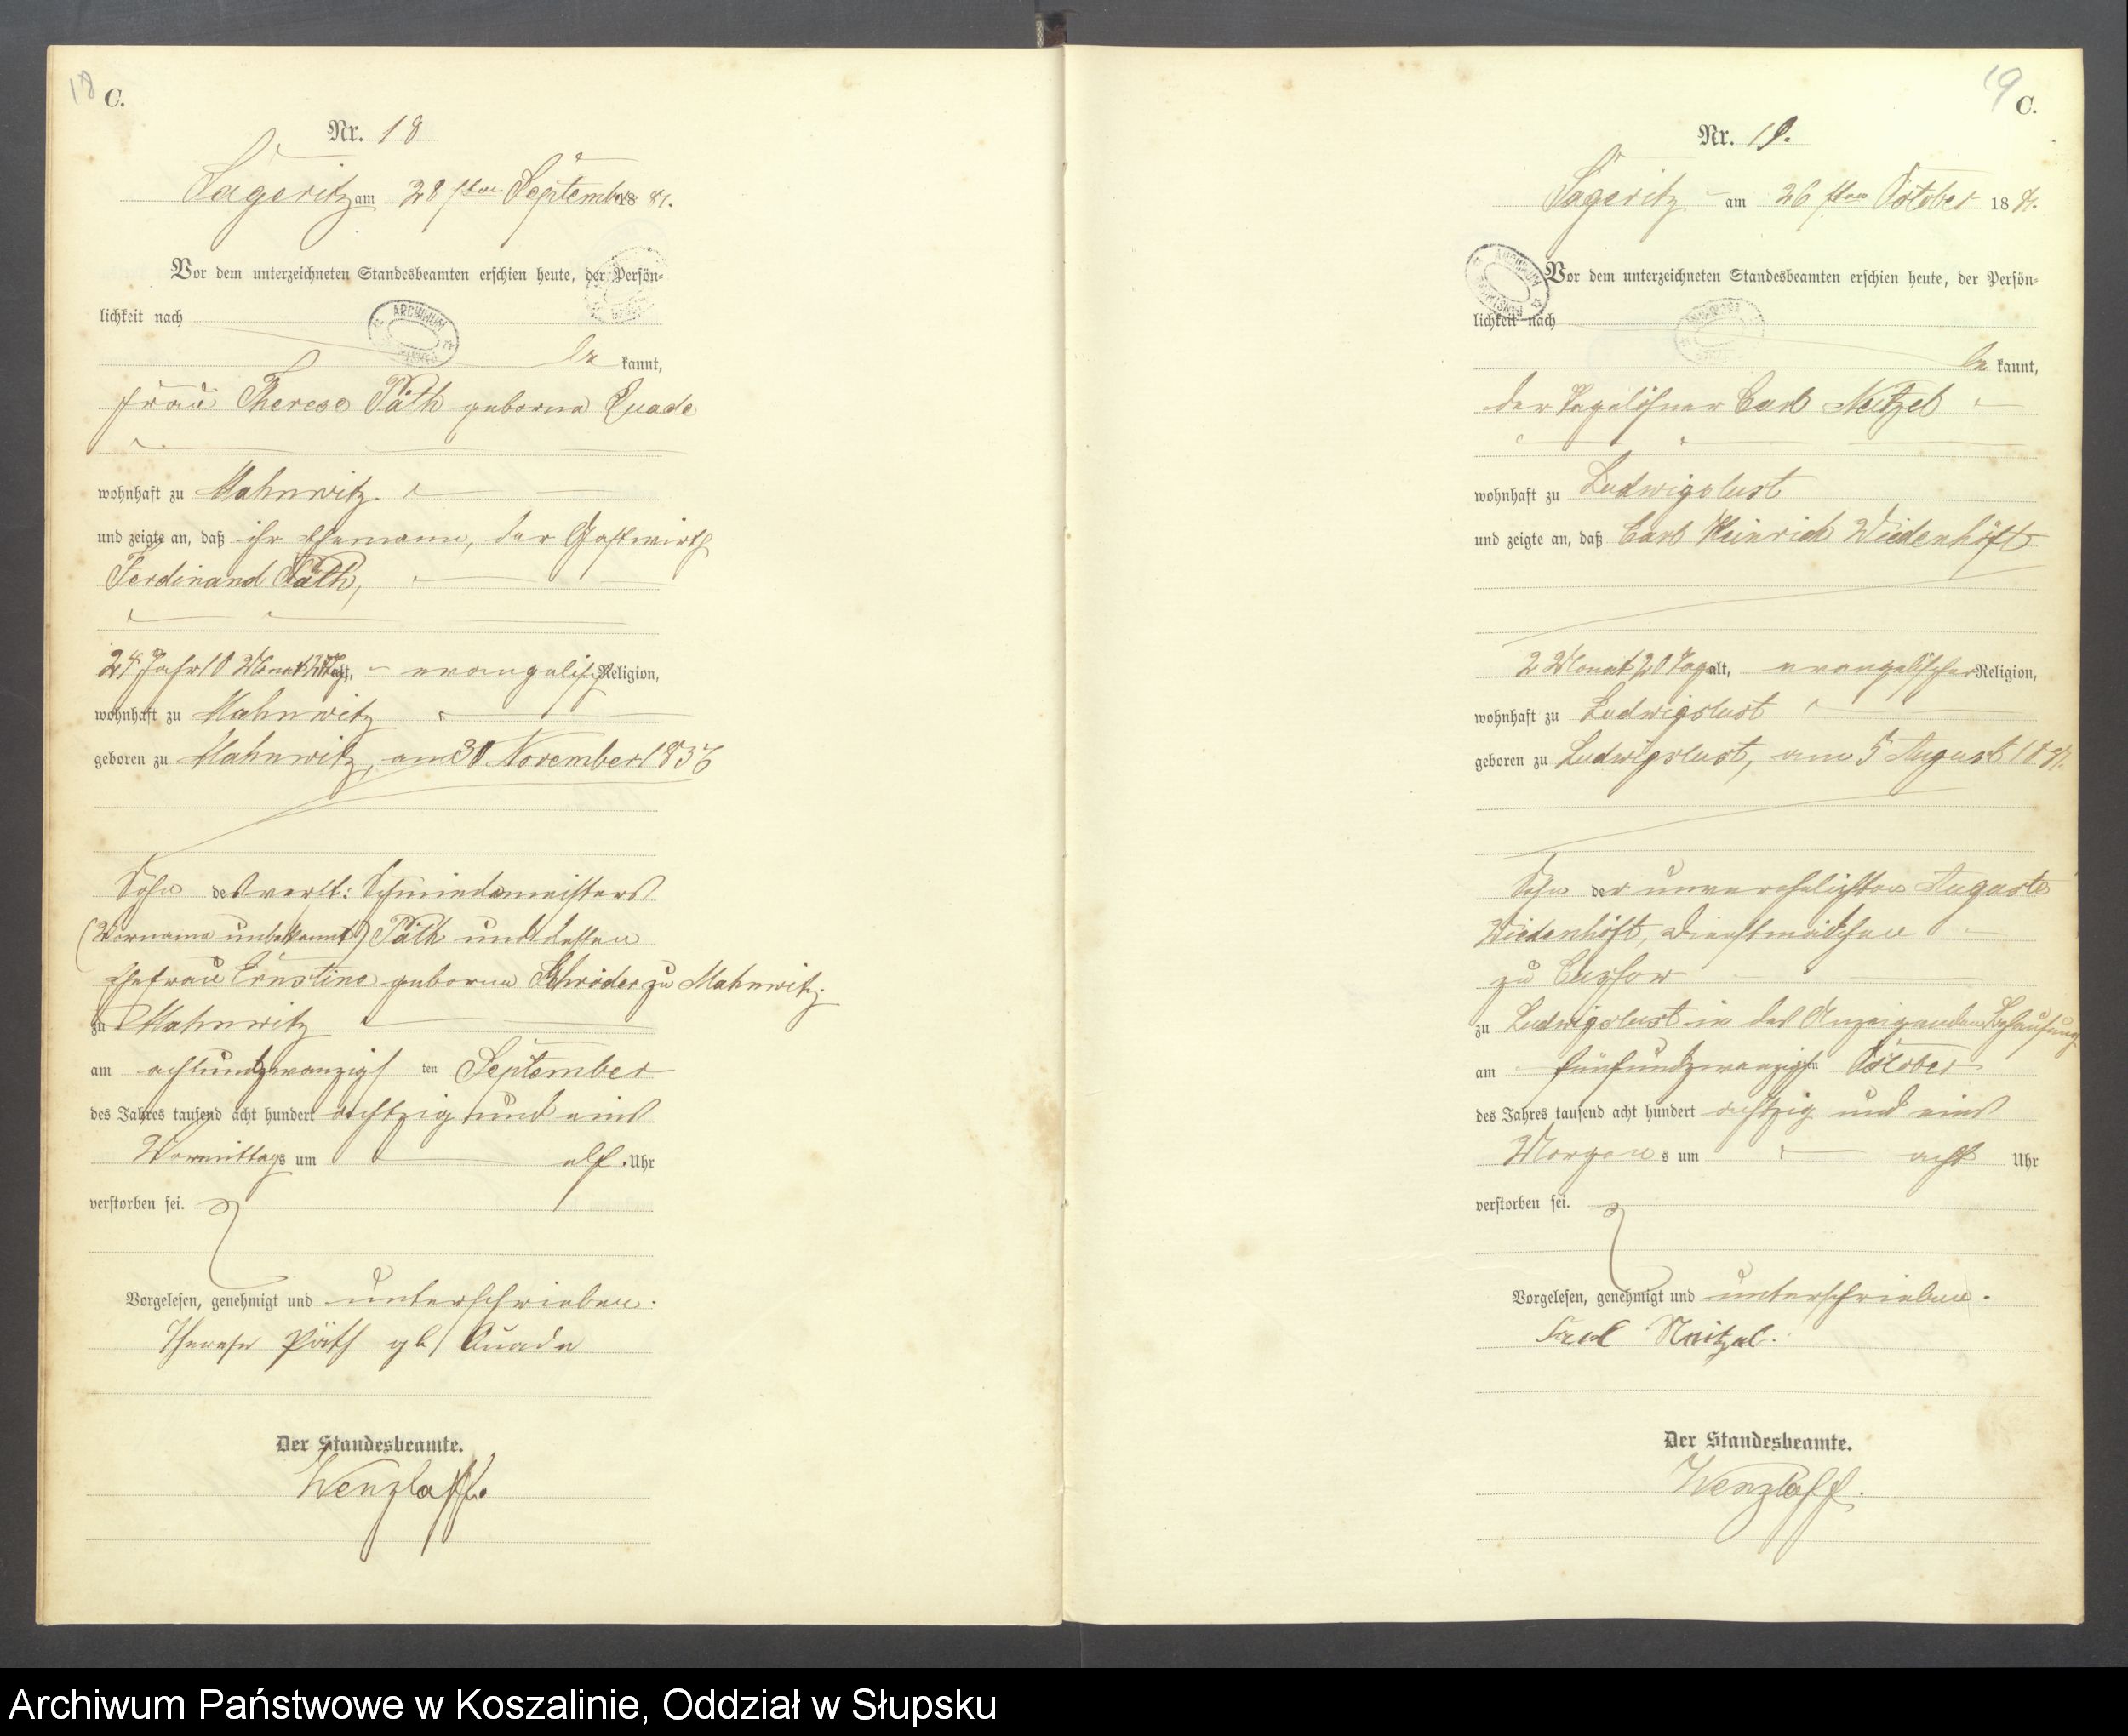 18
C.
Nr. 18
Sageritz am 28sten September 1881.
Vor dem unterzeichneten Standesbeamten erschien heute, der Persön-
lichkeit nach
be kannt,
Frau Therese Päth geborne Quade
wohnhaft zu Mahnwitz
und zeigte an, daß ihr Ehemann, der Gastwirth
Ferdinand Päth,
Jahr 10 Monat alt, evangelisch Religion,
wohnhaft zu Mahnwitz
geboren zu Mahnwitz, am 30 November 1836
Sohn des verst: Schmiedemeisters
(Vorname unbekannt) Päth und dessen
Ehefrau Ernstine geborne Schröder zu Mahnwitz.
zu Mahnwitz
am achtundzwanzigs ten September
des Jahres tausend acht hundert achtzig und eins
Vormittags um elf Uhr
verstorben sei.
Vorgelesen, genehmigt und unterschrieben.
Therese Päth gb Quade
Der Standesbeamte.
Wenzlaff.
19
C.
Nr. 19.
Sageritz am 26sten October 1881.
Vor dem unterzeichneten Standesbeamten erschien heute, der Persön-
lichkeit nach
be kannt,
der Tagelöhner Carl Neitzel
wohnhaft zu Ludwigslust
und zeigte an, daß Carl Heinrich Wiedenhöft
2 Monat 20 Tage alt, evangelischer Religion,
wohnhaft zu Ludwigslust
geboren zu Ludwigslust, am 5 August 1881.
Sohn der unverehelichten Auguste
Wiedenhöft, Dienstmädchen
zu Cussow
zu Ludwigslust in des Anzeigenden Behausung
am fünfundzwanzigsten October
des Jahres tausend acht hundert achtzig und eins
Morgens um acht Uhr
verstorben sei.
Vorgelesen, genehmigt und unterschrieben.
Carl Neitzel.
Der Standesbeamte.
Wenzlaff.
Archiwum Państwowe w Koszalinie, Oddział w Słupsku